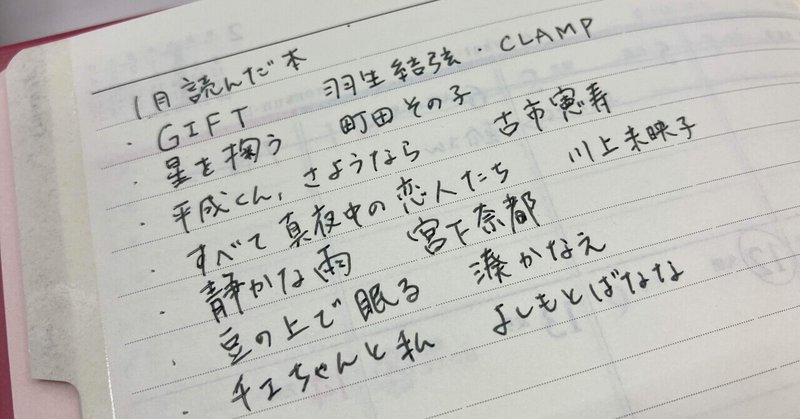 1月 読んだ本
・GIFT 羽生結弦・CLAMP
・星を掬う 町田その子
・平成くん、さようなら 古市憲寿
・すべて真夜中の恋人たち 川上未映子
・静かな雨 宮下奈都
・豆の上で眠る 湊かなえ
・チエちゃんと私 よしもとばなな